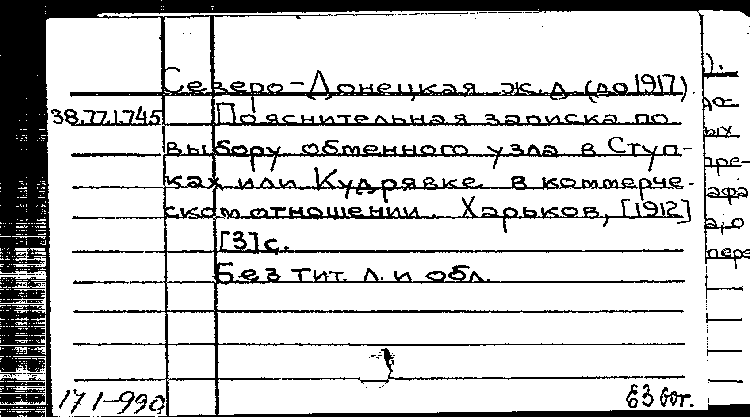 Северо-Донецкая ж.д (до 1917)
38.77.1.745 Пояснительная записка по
выбору обменного узла в Ступ-
ках или Кудрявке в коммерче-
ском отношении. Харьков, [1912]
[3] с.
Без тит. л. и обл.
171-990